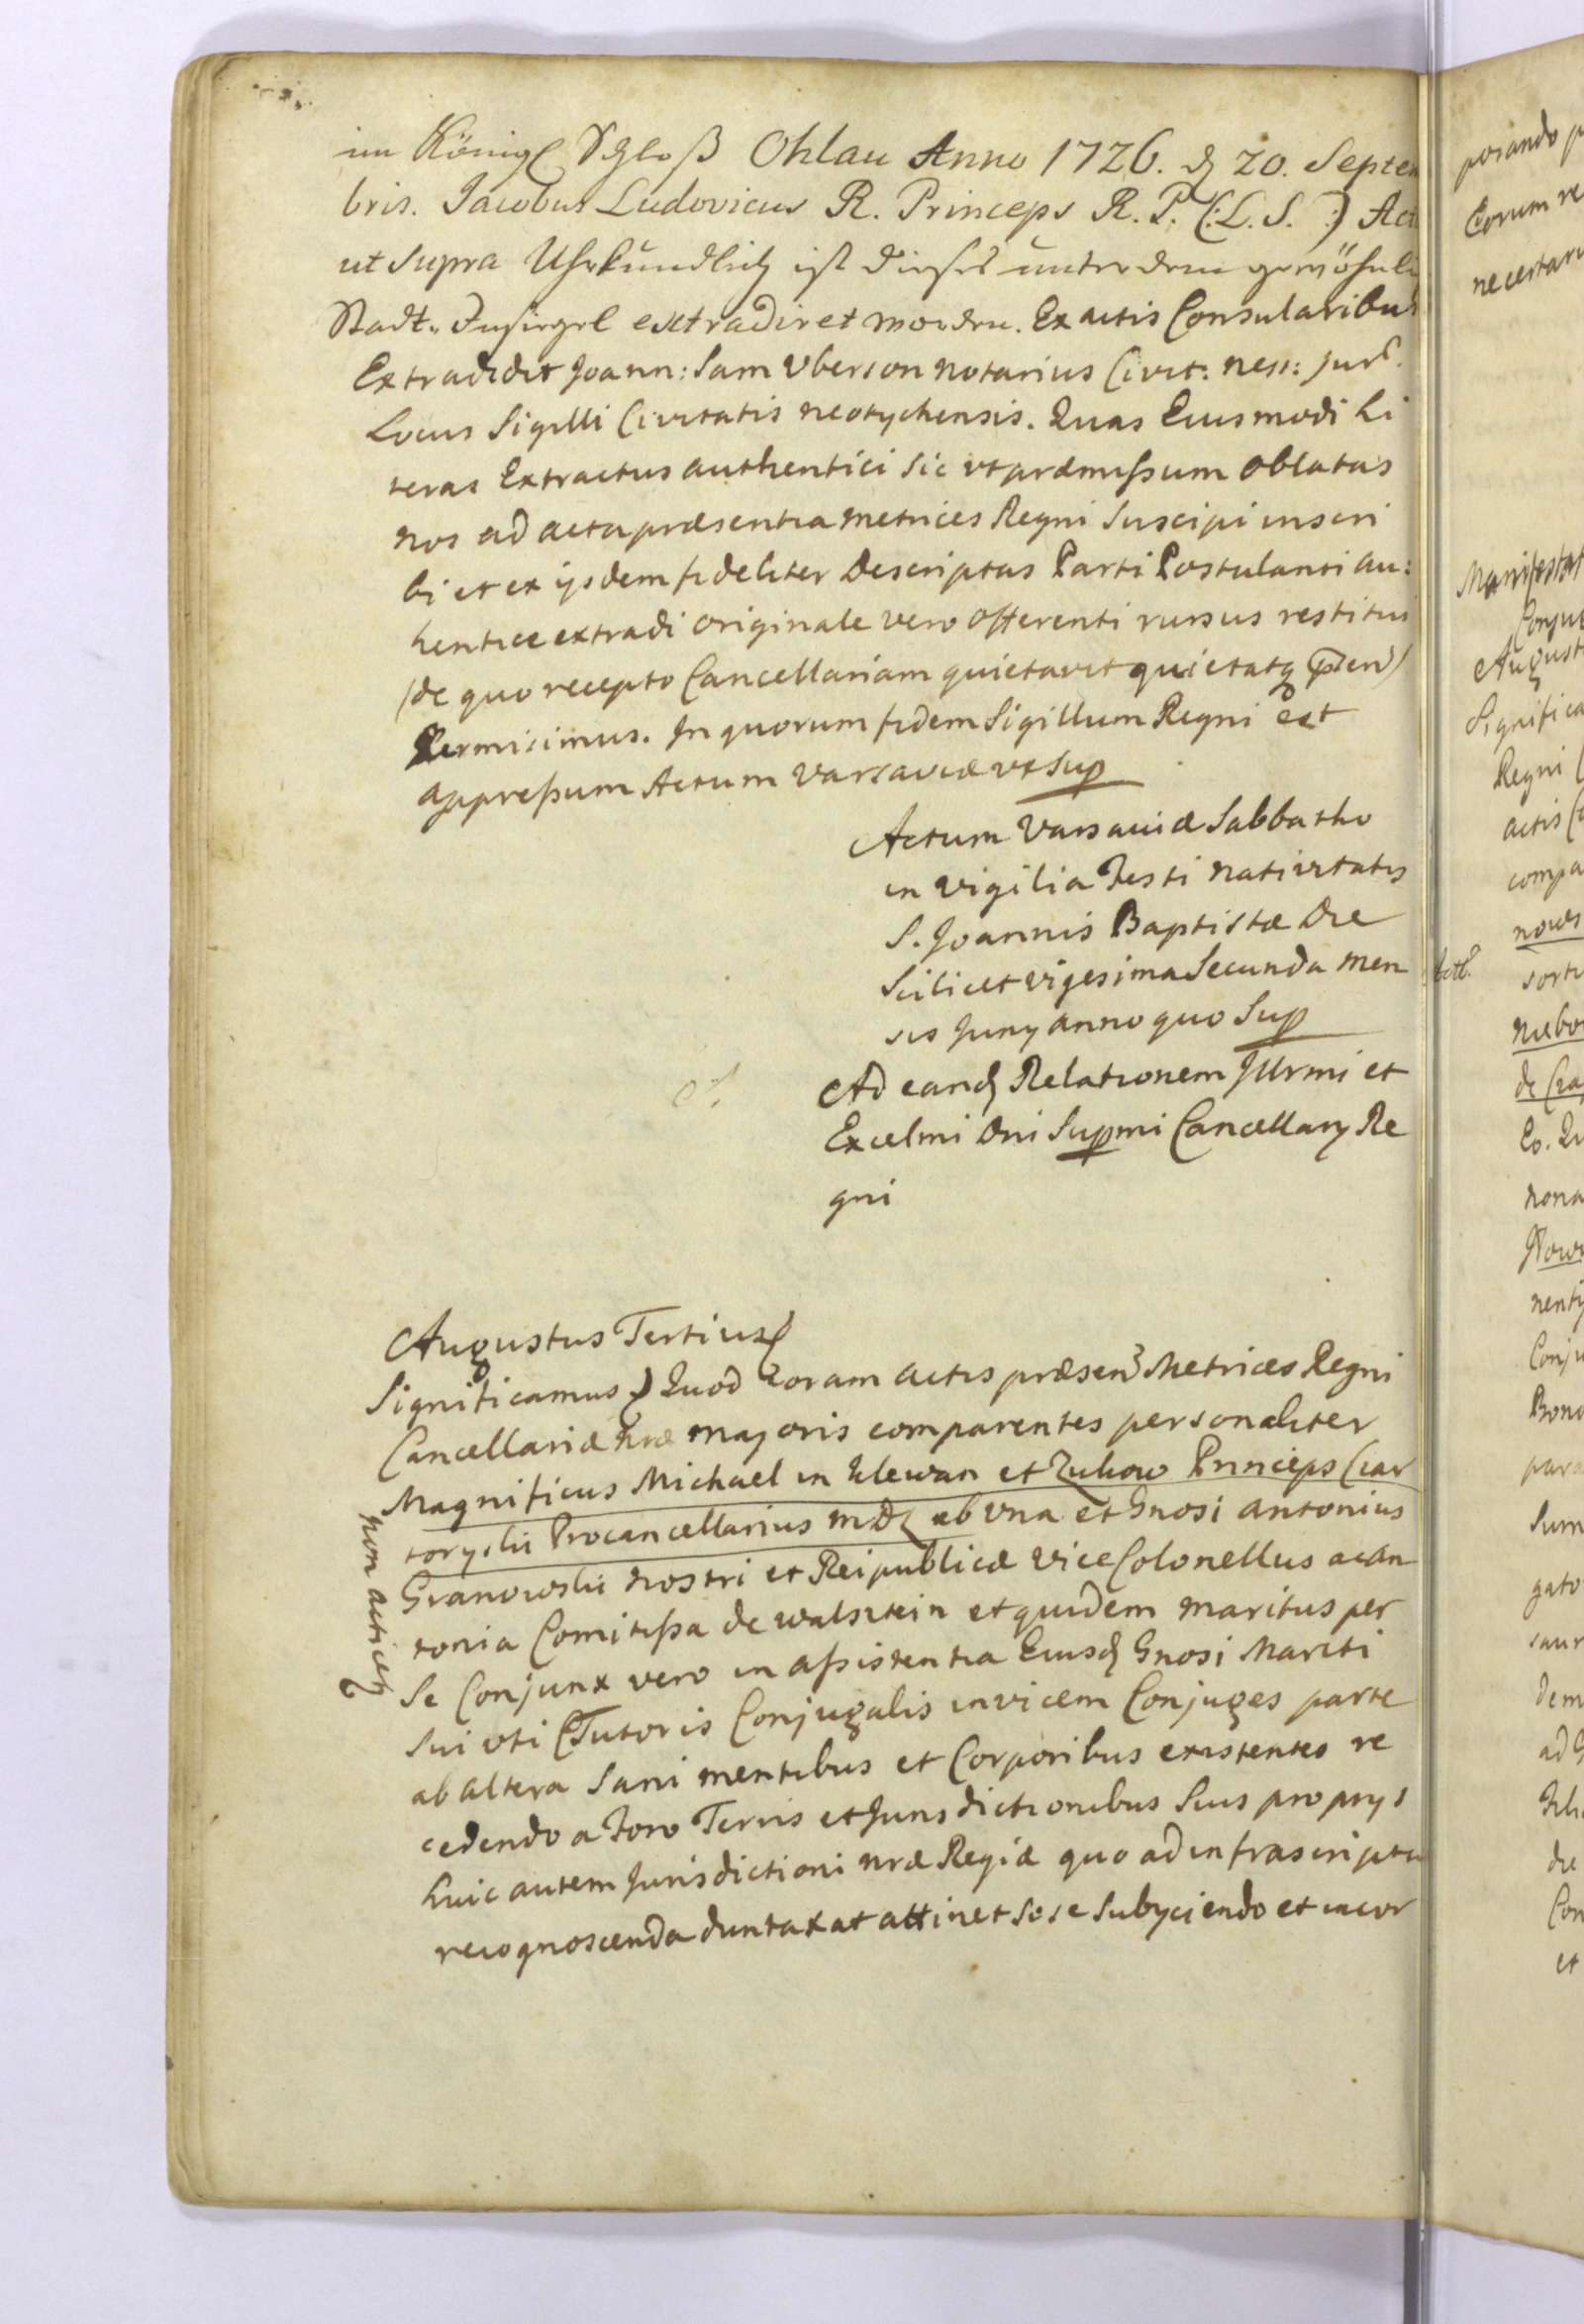 im Königl Schloß Ohlau Anno 1726. d 20. Septem
bris. Jacobus Ludovicus R. Princeps R. P. (:L. S. :) Act
ut Supra Uhrkundlich ist dieses unter dem gewöhnli
Stadt-Insiegel extradiret worden. Ex actis Consularibus
Extradidit Joann: Sam Vberson Notarius Civit: ness: Jur.
Locus Sigilli Civitatis neotychensis. Quas Eiusmodi Li
teras Extractus authentici sic vt præmissum oblatas
nos ad acta præsentia metrices Regni Suscipi inscri
bi et ex ijsdem fideliter Descriptas Parti Postulanti au:
hentice extradi originale vero offerenti rursus restitui
(de quo recepto Cancellariam quietavit quietatq pten)
Permisimus. In quorum fidem Sigillum Regni est
appressum Actum Varsaviæ vt Sup
Actum Varsaviæ Sabbatho
in vigilia Festi nativitatis
S. Joannis Baptistæ Die
Scilicet vigesima Secunda men
sis Junÿ anno quo Sup
Ad eand Relationem Jllrmi et
Excelmi Dni Supmi Cancellarÿ Re
gni
Augustus Tertius
Significamus Quod Coram actis præsen Metrices Regni
Cancellariæ nræ majoris comparentes personaliter
Magnificus Michael in Klewan et Zukow Princeps Czar
toryski Procancellarius MDL ab vna et Gnosi Antonius
Granowski nostri et Reipublicæ Vice Colonellus ac An
tonia Comitissa de Walsztein et quidem maritus per
Se Conjunx vero in assistentia Eiusd Gnosi Mariti
Sui vti Tutoris Conjugalis invicem Conjuges parte
ab altera Sani mentibus et Corporibus existentes re
cedendo a Foro Terris et Jurisdictionibus Suis proprÿs
huic autem Jurisdictioni nræ Regiæ quo ad infrascripta
recognoscenda duntaxat attinet Sese Subÿciendo et incor
non acticet
porando p
Eorum re
ne certam
Manifestat
Conjug
August
Significa
Regni
actis
compa
nows
sorti
niebo
de Cza
Eo. Qu
nona
Nows
nenti
Conju
Bono
para
Sum
gato
saur
dem
ad G
Kle
die
Con
et